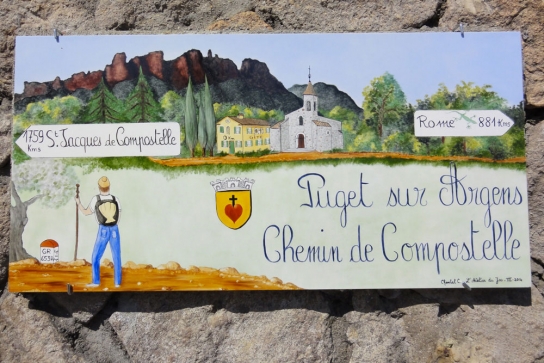 1759 St Jacques de Compostelle
Kms
Rome 881 Kms
Puget sur Argens
Chemin de Compostelle
GR